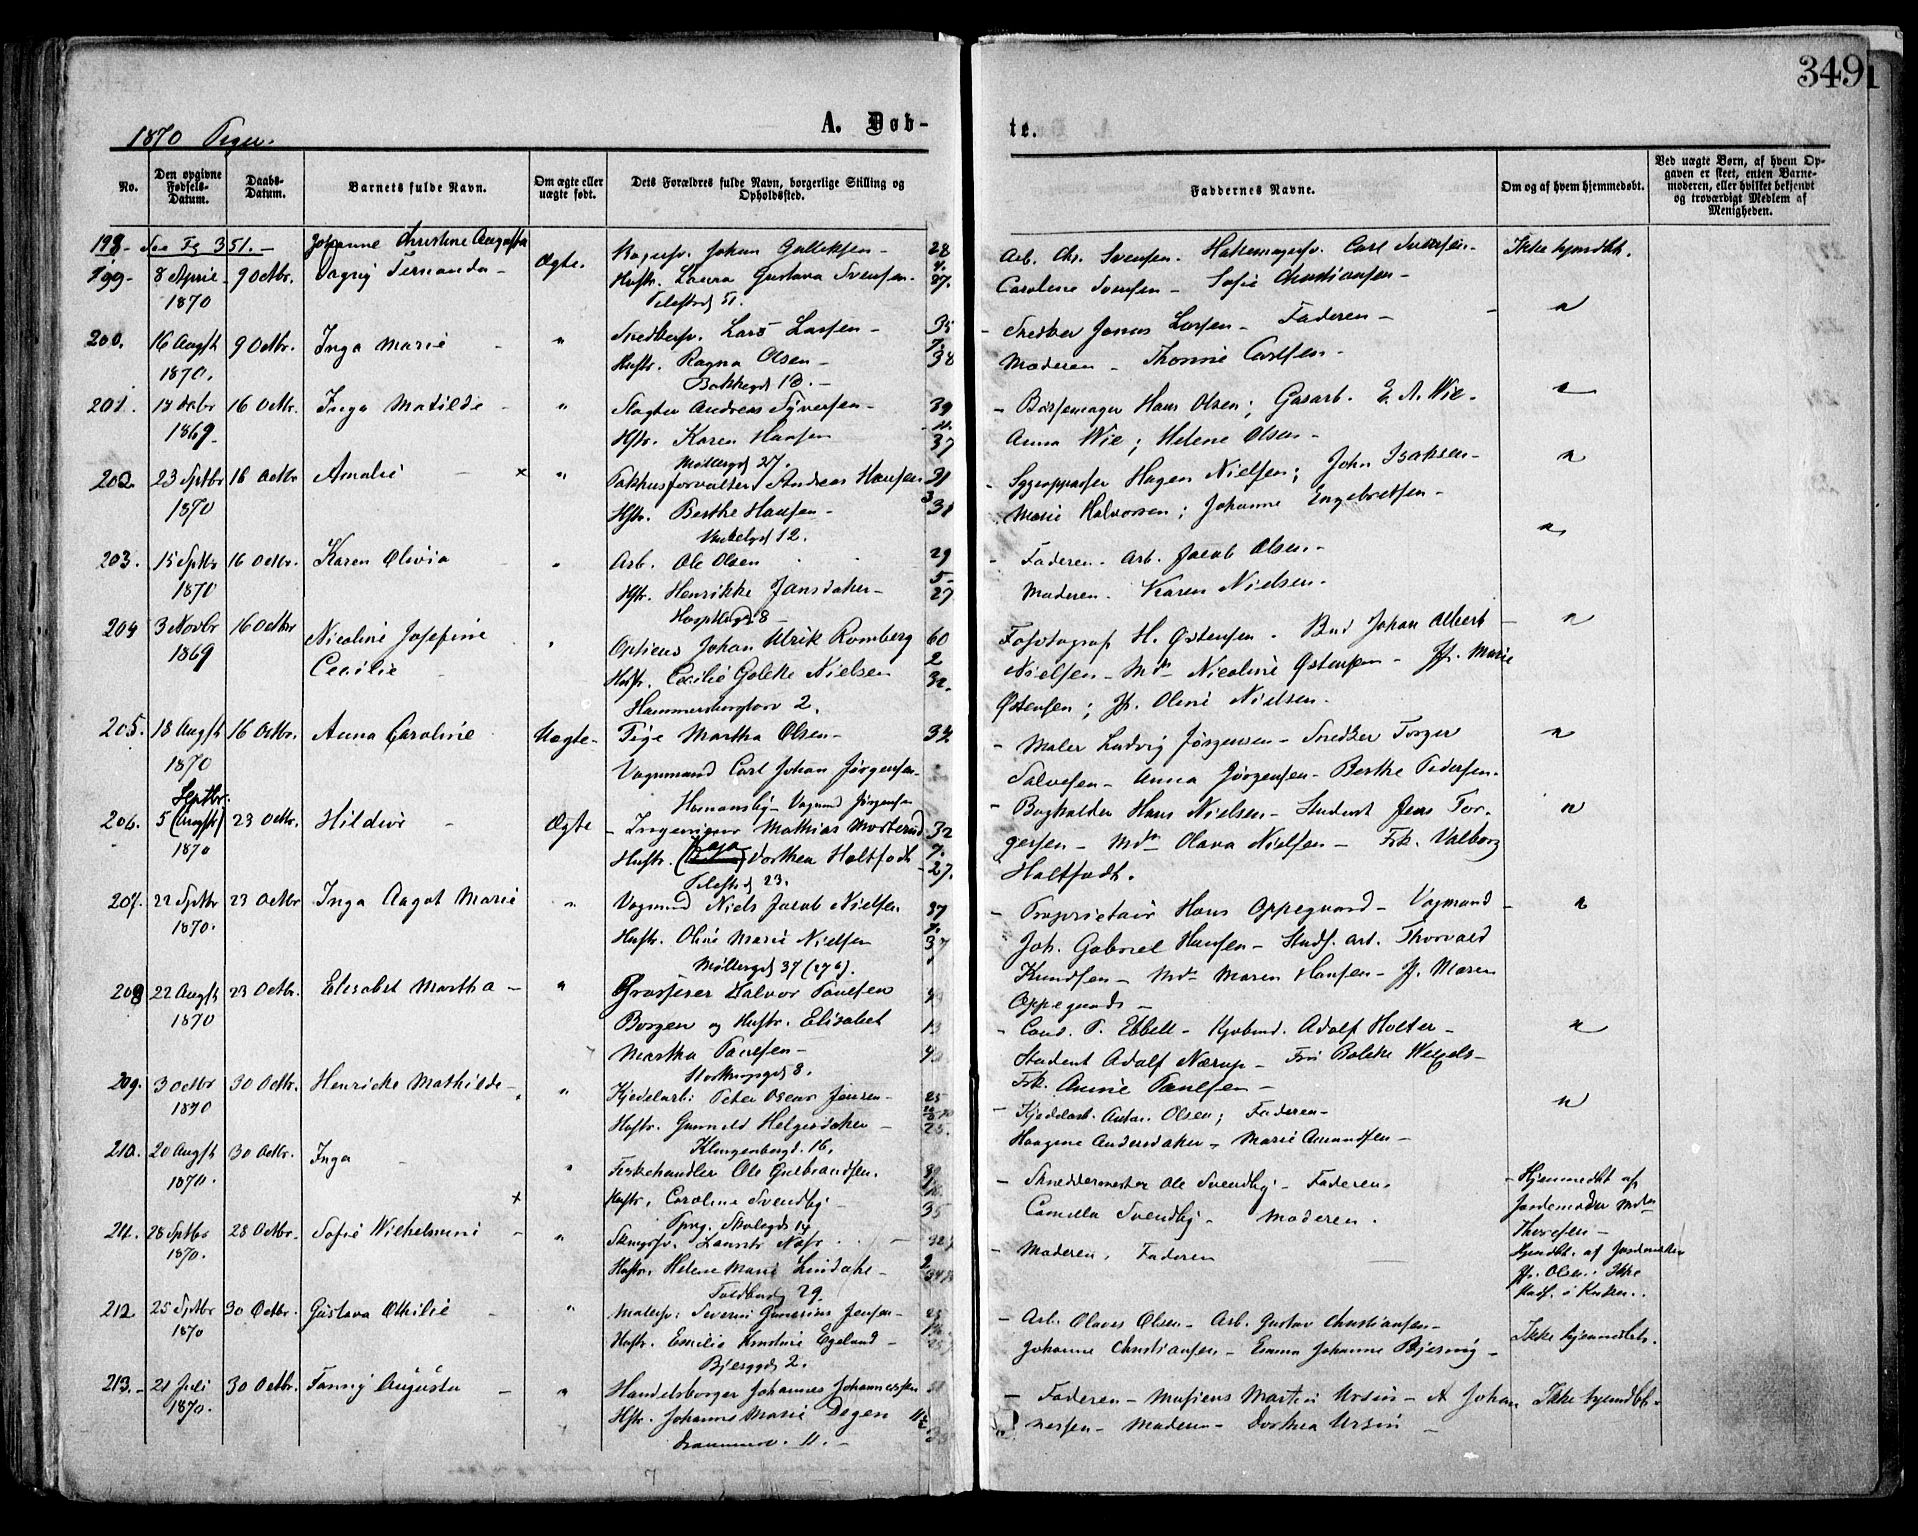 349
1870 Piger.
A. Døb-
te.
No.
Den opgivne Fødsels-Datum.
Daabs-Datum.
Barnets fulde Navn.
Om ægte eller uægte født.
Dets Forældres fulde Navn, borgerlige Stilling og Opholdssted.
Faddernes Navne.
Om og af hvem hjemmedøbt.
Ved uægte Børn, af hvem Opgaven er skeet, enten Barnemoderen, eller hvilket bekjendt og troværdigt Medlem af Menigheden.
198- See Fg 351.-
Johanne Christine Augusta
199- 8 April 9 Octbr. Dagny Fernanda- Ægte. Johan Gulliksen- 28
1870 Hustr. Laura Gustava Svensen- 27.
51.
Arb. Chr. Svensen. Carl Svensen- Ikke hjmdbt.
Caroline Svensen- Sofie Christiansen-
200. 16 Augst 9 Octbr. Inga Marie - " Snedkersv. Lars Larsen- 35
1870. Hustr. Ragna Olsen- 38
Bakkegd 13.-
- Snedker Jonas Larsen- Faderen- "
Moderen- Thomine Carlsen-
201. 14 Decbr 16 Octbr. Inga Matilde - " Slagter Andreas Syversen- 39
1869. Hstr. Karen Hansen 37
Møllergd 27.
- Børstemager Hans Olsen; Gasarb. E. A. Wie- "
Anna Wie; Helene Olsen-
202. 23 Septbr 16 Octbr Amalie - x " Pakhusforvalter Andreas Hansen 31
1870 Hstr. Berthe Hansen- 31
12.
- Sygepasser Hagen Nielsen; John Isaksen- "
Marie Halvorsen; Johanne Engebretsen-
203. 15 Septbr 16 Octbr. Karen Olivia " Arb. Ole Olsen 29
1870 Hstr. Henrikke Jansdatter- 27
8-
- Faderen. Arb. Jacob Olsen- "
Moderen. Karen Nielsen.
204 3 Novbr 16 Octbr Nicoline Josefine " Opticus Johan Ulrik Romberg 60
1869 Cecilie - Hustr. Cecilie Golette Nielsen 32.
Hammersborgtorv 2.
Fotograf H. Østensen. Bud Johan Albert- "
Nielsen- Md. Nicoline Østensen- Jfr. Marie
Østensen; Jfr. Oline Nielsen.
205. 18 Augst 16 Octbr. Anna Caroline Uægte- Pige Martha Olsen- 34
1870 Vognmand Carl Johan Jørgensen-
Homansby- Vognmd Jørgensen
- Maler Ludvig Jørgensen- Snedker Torger "
Salvesen- Anna Jørgensen- Berthe Pedersen.
Septbr.
206. 5 (Augst) 23 Octbr. Hildur - Ægte - Ingeniør Mathias Mosterud 32
1870 Hustr. Dorthea Holtfodt- 27.
23.
- Bogholder Hans Nielsen- Student Jens Tor- "
gersen- Md. Olava Nielsen- Frk. Valborg
Holtfodt.
207. 22 Septbr 23 Octbr Inga Aagot Marie " Vognmd Niels Jacob Nielsen 37
1870. Hustr. Oline Marie Nielsen 37
Møllergd 37 (276).
- Proprietair Hans Oppegaard- Vognmand- "
Joh. Gabriel Hansen- Stud. art. Thorvald
Knudsen- Md. Maren Hansen- Jf. Maren
Oppegaard-
208 22 Augst 23 Octbr. Elisabet Martha- " Grosserer Halvor Poulsen 49
1870 Borgen og Hustr. Elisabet 13
Martha Poulsen- 40
8.
- Cons. P. Ebbell- Kjøbmd. Adolf Holter- "
Student Adolf Nærup- Fru Bolette Wessels-
Frk. Annie Poulsen-
209. 3 Octbr 30 Octbr. Henricke Mathilde- " Kjedelarb: Peter Oscar Jensen- 25
1870 Hustr. Gunnild Helgesdatter- 25.
Klingenbergd. 16.
- Kjedelarb. Anton Olsen; Faderen- "
Haagine Andersdatter- Marie Amundsen-
210. 20 Augst 30 Octbr. Inga - " Fiskehandler Ole Gulbrandsen. 39
1870. x Hustr. Caroline Svendby- 35
14
- Skreddermester Ole Svendby- Faderen. - Hjemmedbt af
Camilla Svendby- Moderen. Jordemoder Md.
Thoresen-
211. 28 Septbr 28 Octbr. Sofie Wilhelmine - " Lauritz Næss - 32
1870. Hustr. Helene Marie Lindahl- 34
29.
- Moderen. Faderen Hjmdbt. af Jordmoder
Jfr. Olsen. Ikke
stadf. i Kirken.
212. 25 Septbr 30 Octbr. Gustava Othilie - " Malersv: Severin Gunerius Jensen- 25
1870 Hustr. Emilie Kristine Egeland- 25
Bjerggd 2.
- Arb. Olaves Olsen- Arb. Gustav Christiansen-
Johanne Christiansen- Emma Johanne Bjering- Ikke hjemmdbt.
213.- 21 Juli 30 Octbr. Fanny Augusta - " Handelsborger Johannes Johannessen
1870. Hstr. Johanne Marie Degen
11.-
- Faderen- Martin Ursin- A Johan Ikke hjmdbt.
nessen- Moderen- Dorthea Ursin -